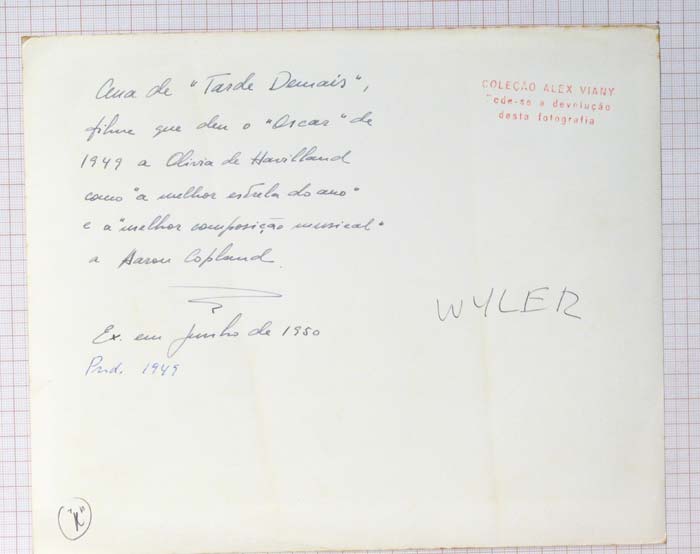 Cena de "Tarde Demais",
filme que deu o "Oscar" de
1949 a Olivia de Havilland
como "a melhor estrela do ano"
e a "melhor composição musical"
a Aaron Copland.
Ex. em junho de 1950
Prod. 1949
COLEÇÃO ALEX VIANY
Pede-se a devolução
desta fotografia
WYLER
"K"